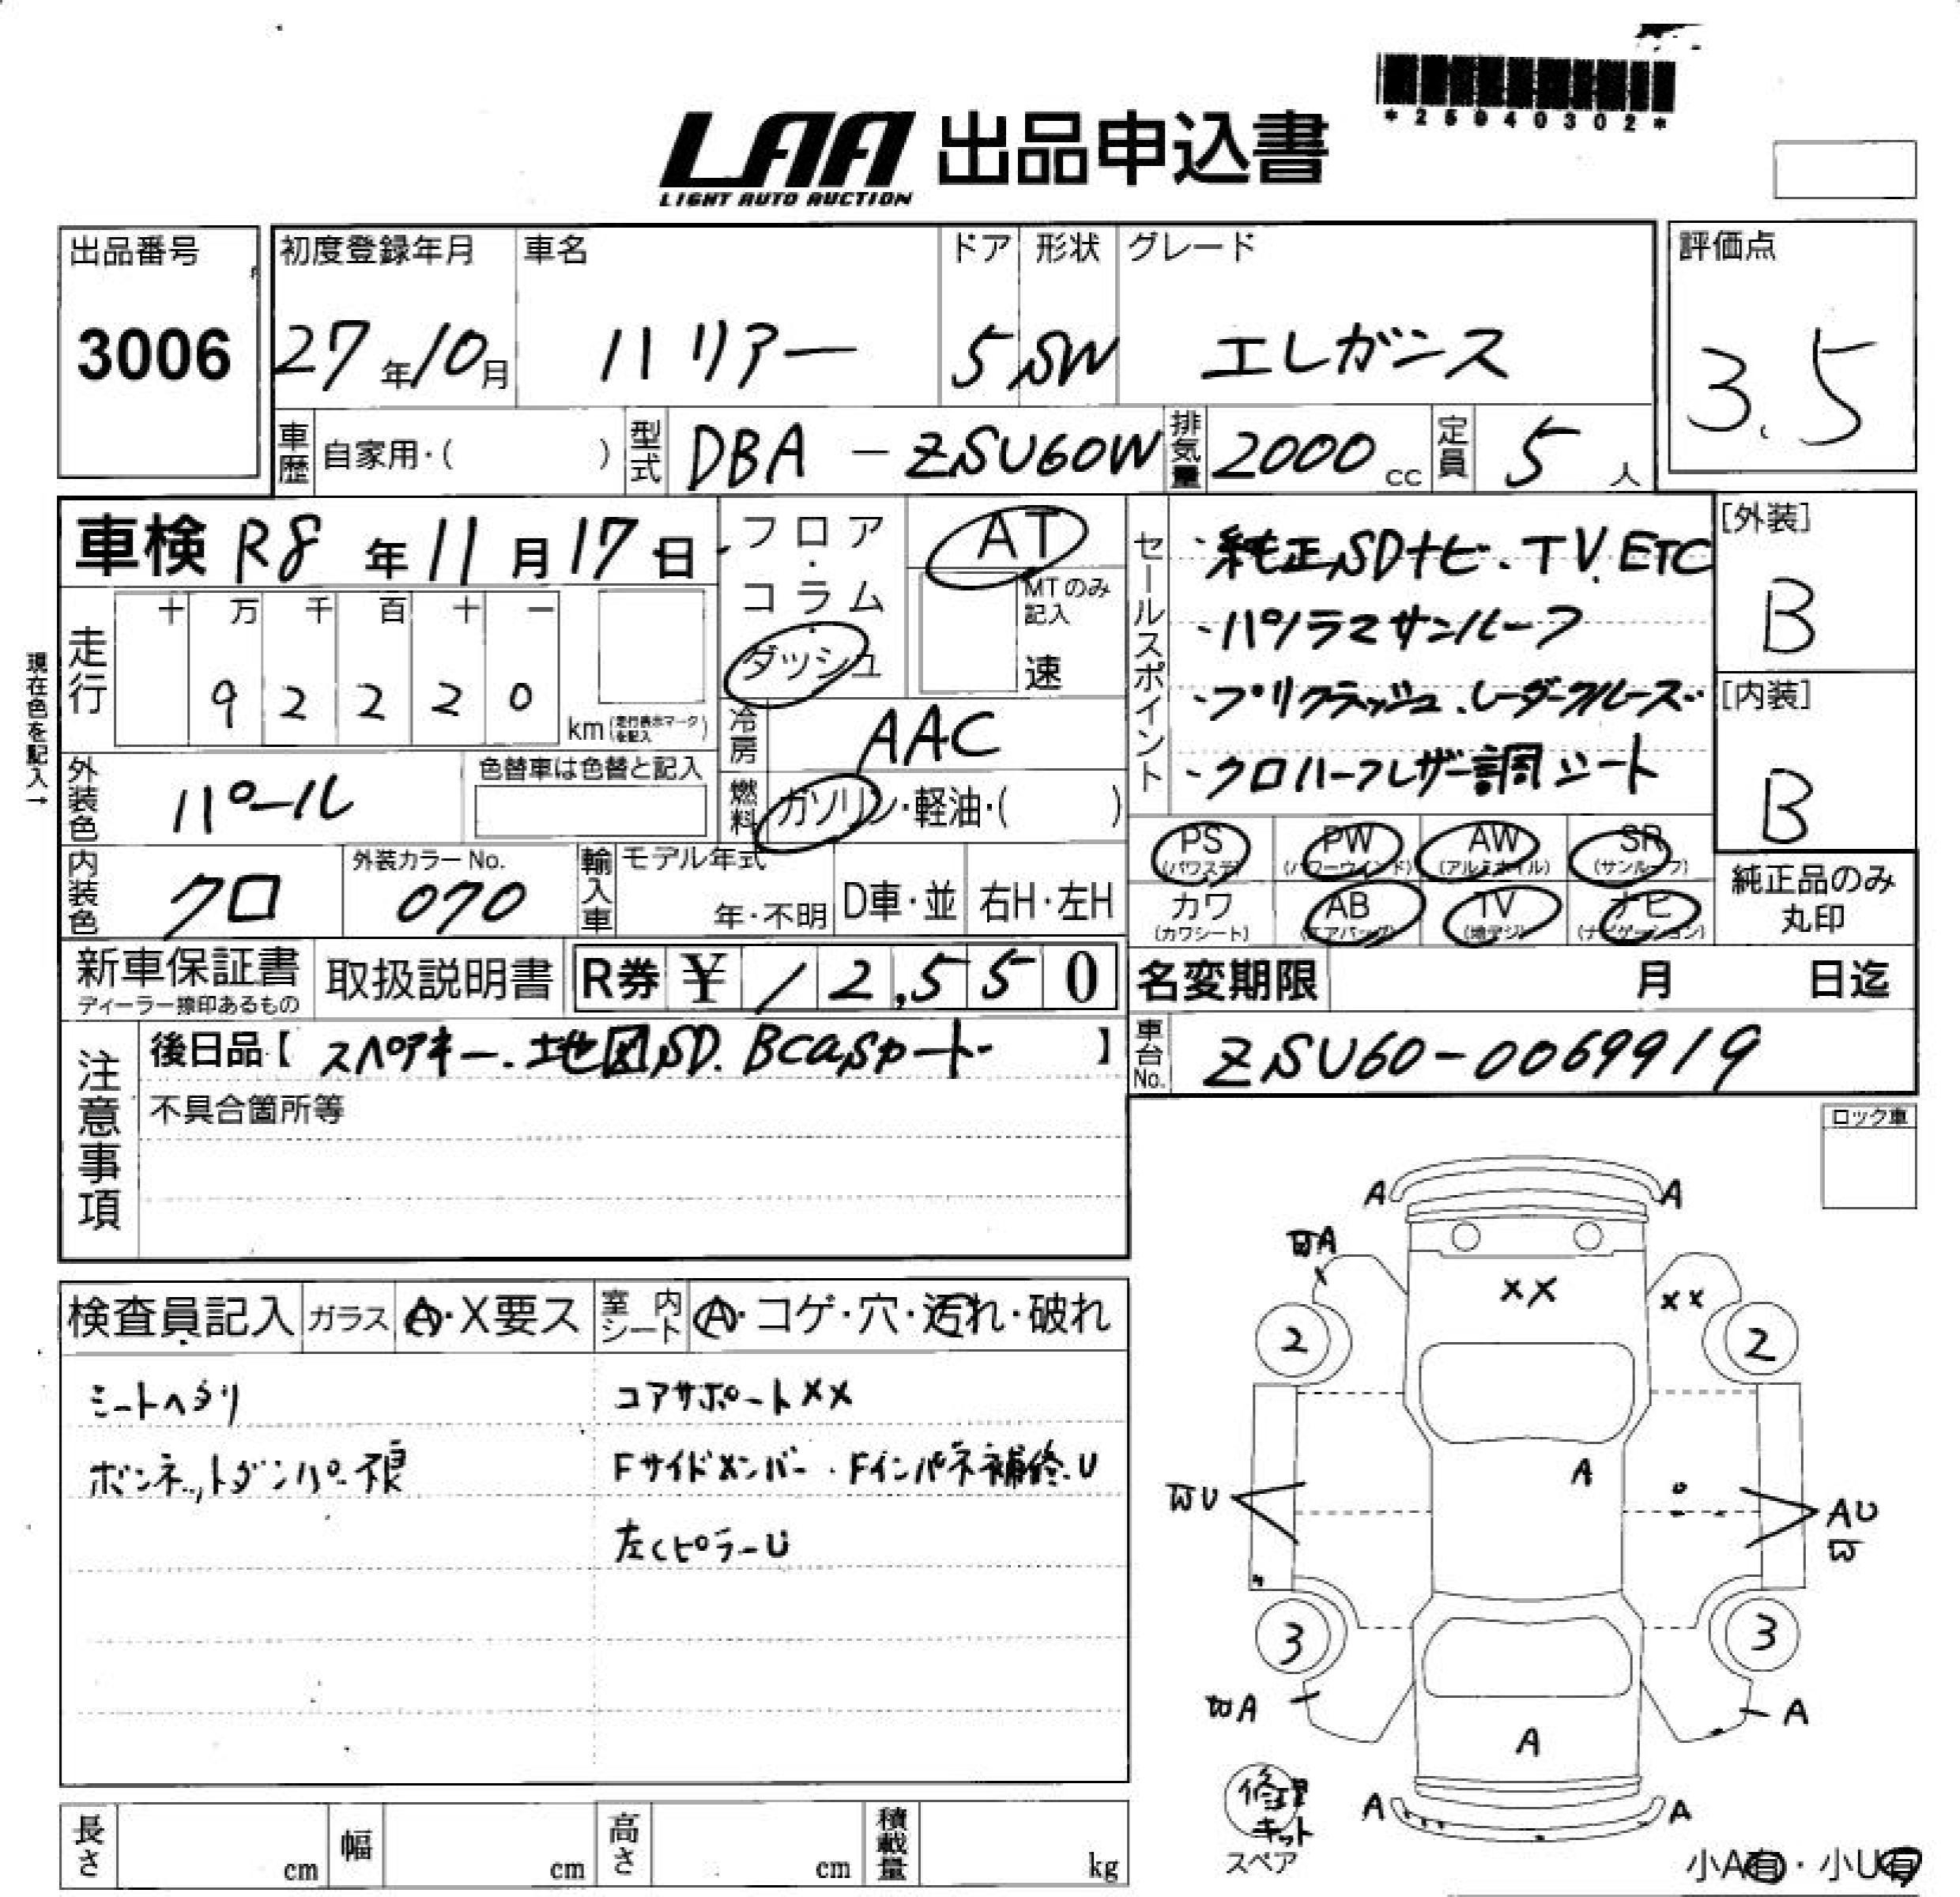 *25040302*
LAA 出品申込書
LIGHT AUTO AUCTION
出品番号
3006
初度登録年月 車名 ドア 形状 グレード
27年10月 ハリアー 5 SW エレガンス
評価点
3.5
車歴 自家用・( ) 型式 DBA-ZSU60W 排気量 2000cc 定員 5人
車検 R8年11月17日
フロア・コラム・ダッシュ
AT
MTのみ記入
速
セールスポイント
・純正SDナビ.TV.ETC
・パノラマサンルーフ
・プリクラッシュ.レーダークルーズ
・クロハーフレザー調シート
[外装]
B
[内装]
B
現在色を記入→
走行 十 万 千 百 十 一
9 2 2 2 0
km(走行表示マークを記入)
冷房 AAC
燃料 ガソリン・軽油・( )
外装色 パール
色替車は色替と記入
内装色 クロ
外装カラーNo.
070
輸入車 モデル年式
年・不明 D車・並 右H・左H
PS (パワステ) PW (パワーウインド) AW (アルミホイル) SR (サンルーフ)
カワ (カワシート) AB (エアバッグ) TV (地デジ) ナビ (ナビゲーション)
純正品のみ丸印
新車保証書
ディーラー捺印あるもの
取扱説明書
R券 ¥12,550
名変期限 月 日迄
車台No. ZSU60-0069919
注意事項
後日品【スペアキー.地図SD.Bcasカード】
不具合箇所等
ロック車
検査員記入 ガラス A・X要ス 室内シート A・コゲ・穴・汚れ・破れ
シートヘタリ
ボンネットダンパー不良
コアサポートXX
Fサイドメンバー.Fインパネ補修.U
左CピラーU
A A
A
XX XX
2 2
A
WU
AU
W
3 3
WA
A
A
A A
修理キット
スペア
小A有・小U有
長さ cm 幅 cm 高さ cm 積載量 kg